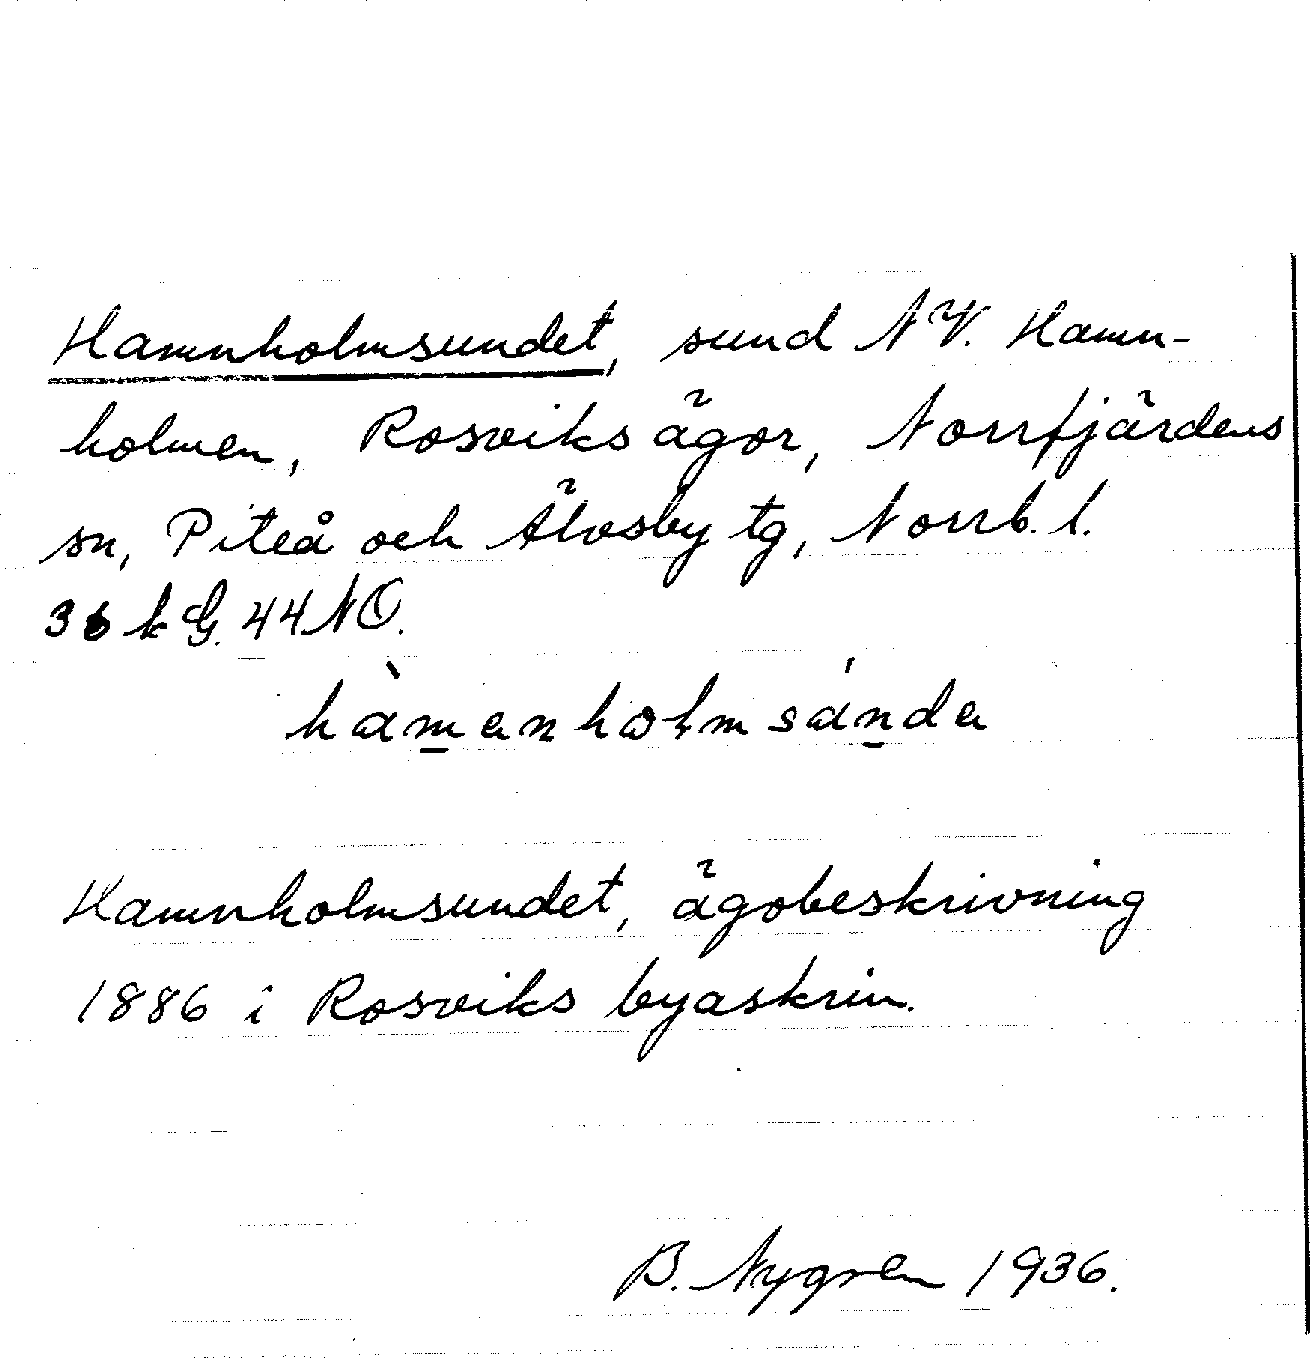 Hamnholmsundet, sund NV. Hamn-
holmen, Rosviks ägor, Norrfjärdens
sn, Piteå och Älvsby tg, Norrb. l.
36 k G. 44 NO.
hàmenholmsánde
Hamnholmsundet, ägobeskrivning
1886 i Rosviks byaskrin.
B. Nygren 1936.